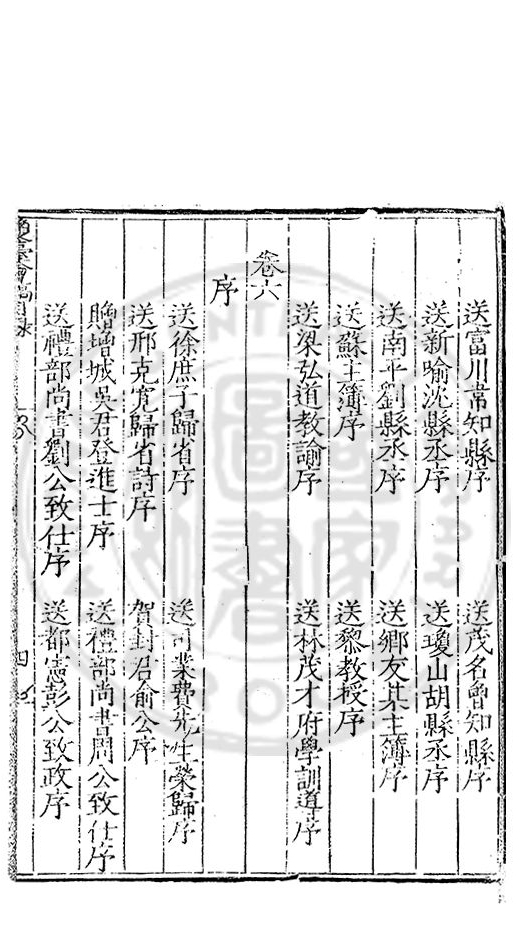 送富川常知縣序　送茂名曾知縣序
送新喻沈縣丞序　送瓊山胡縣丞序
送南平劉縣丞序　送鄉友某主簿序
送蘇主簿序　送黎教授序
送梁弘道教諭序　送林茂才府學訓導序
卷六
序
送徐庶子歸省序　送司業費先生榮歸序
送邢克寬歸省詩序　賀封君俞公序
贈增城吳君登進士序　送禮部尚書周公致仕序
送禮部尚書劉公致仕序　送都憲彭公致政序
臺會稿目录　四